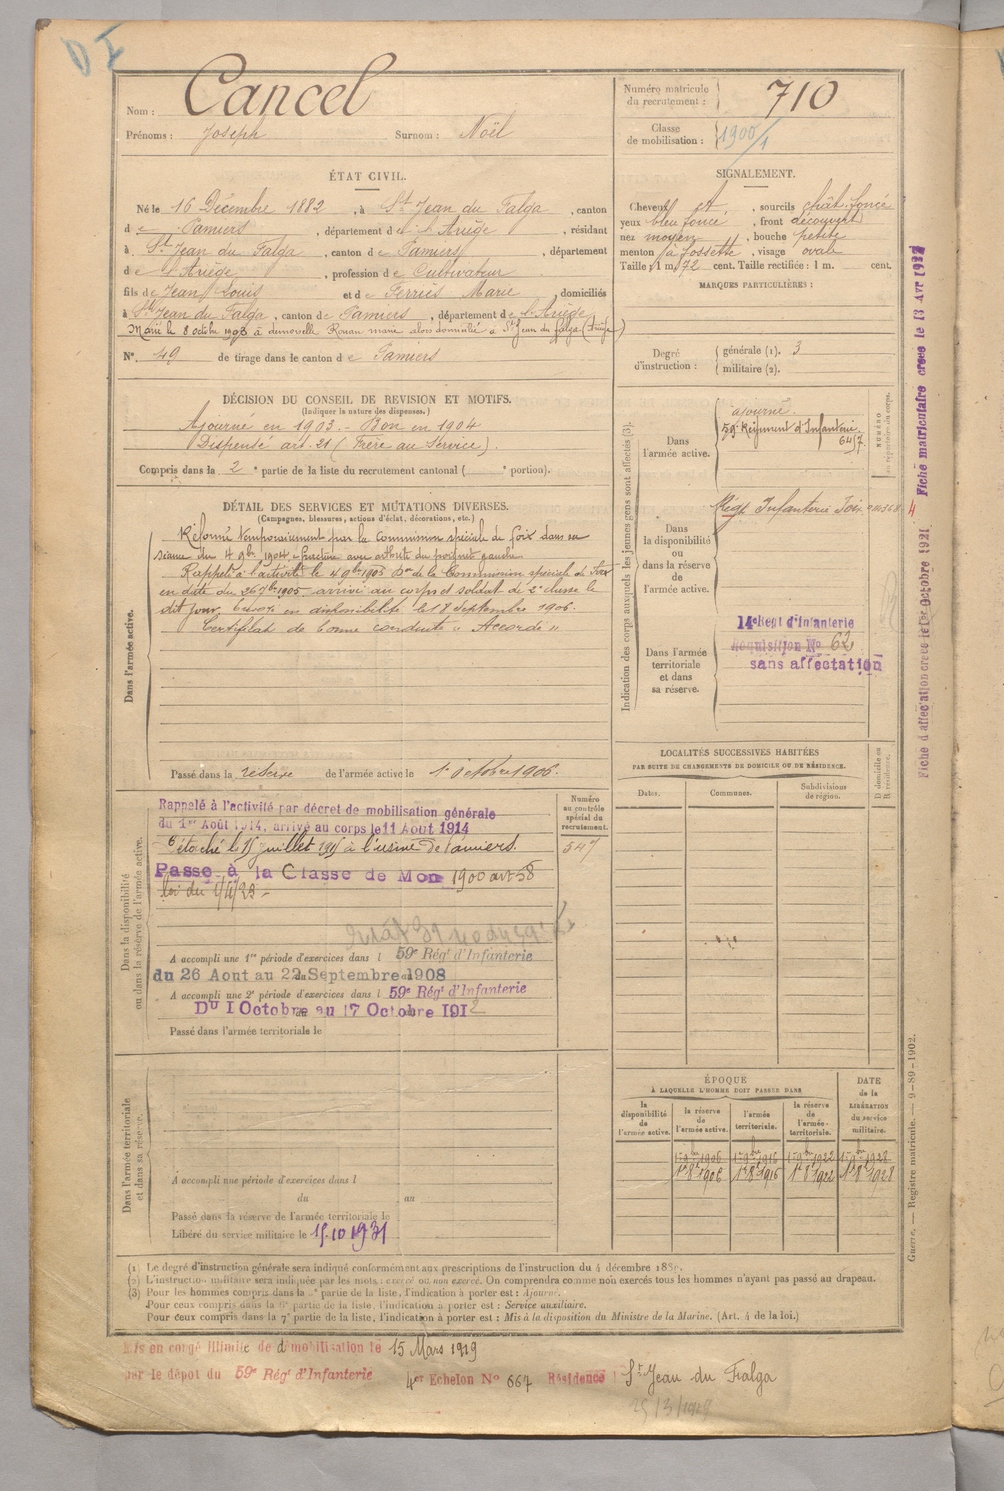 D I
Nom : Cancel
Prénoms : Joseph Surnom : Noël
Numéro matricule du recrutement : 710
Classe de mobilisation : 1900/1
ÉTAT CIVIL.
Né le 16 Décembre 1882, à St Jean du Falga, canton
de Pamiers, département de l'Ariège, résidant
à St Jean du Falga, canton de Pamiers, département
de l'Ariège, profession de Cultivateur
fils de Jean Louis et de Ferriès Marie, domiciliés
à St Jean du Falga, canton de Pamiers, département de l'Ariège
Marié le 8 octobre 1903 à demoiselle Rouan marie alors domicilié à St Jean du falga (Ariège)
N° 49 de tirage dans le canton de Pamiers
SIGNALEMENT.
Cheveux et, sourcils chât. foncé
yeux bleu foncé, front découvert
nez moyen, bouche petite
menton à fossette, visage ovale
Taille : 1 m. 72 cent. Taille rectifiée : 1 m. cent.
MARQUES PARTICULIÈRES :
Degré d'instruction : générale (1). 3
militaire (2).
DÉCISION DU CONSEIL DE REVISION ET MOTIFS.
(Indiquer la nature des dispenses.)
Ajourné en 1903 - Bon en 1904
Dispensé art. 21 (Frère au Service)
Compris dans la 2e partie de la liste du recrutement cantonal ( e portion).
DÉTAIL DES SERVICES ET MUTATIONS DIVERSES.
(Campagnes, blessures, actions d'éclat, décorations, etc.)
Dans l'armée active.
Réformé temporairement par la Commission spéciale de foix dans sa
séance du 4 9bre 1904 « fracture avec arthrite du poignet gauche
Rappelé à l'activité le 4 9bre 1905 Don de la Commission spéciale de Foix
en date du 26 7bre 1905 arrivé au corps et soldat de 2e classe le
dit jour. Envoyé en disponibilité le 18 Septembre 1906.
Certificat de bonne conduite « Accordé »
Passé dans la réserve de l'armée active le 1er octobre 1906.
Indication des corps auxquels les jeunes gens sont affectés (3).
NUMÉRO au répertoire du corps.
Dans l'armée active.
ajourné.
59e Régiment d'Infanterie
6417.
Dans la disponibilité ou dans la réserve de l'armée active.
Régt Infanterie Foix
Dans l'armée territoriale et dans sa réserve.
14e Régt d'Infanterie
Réquisition N° 62
sans affectation
Fiche d'affectation créée le 1er Octobre 1921
Fiche matriculaire créée le 13 Avr 1927
LOCALITÉS SUCCESSIVES HABITÉES
PAR SUITE DE CHANGEMENTS DE DOMICILE OU DE RÉSIDENCE.
Dates. Communes. Subdivisions de région. D domicile ou R résidence.
Dans la disponibilité ou dans la réserve de l'armée active.
Numéro au contrôle spécial du recrutement.
547
Rappelé à l'activité par décret de mobilisation générale
du 1er Août 1914, arrivé au corps le 11 Août 1914
Détaché le 15 juillet 1915 à l'usine de Pamiers.
Passé à la Classe de Mon 1900 art 58
loi du 1/4/23 -
A accompli une 1re période d'exercices dans l 59e Régt d'Infanterie
du 26 Aout au 22 Septembre 1908
A accompli une 2e période d'exercices dans l 59e Régt d'Infanterie
Du 1 Octobre au 17 Octobre 1912
Passé dans l'armée territoriale le
Dans l'armée territoriale et dans sa réserve.
A accompli une période d'exercices dans l
du au
Passé dans la réserve de l'armée territoriale le
Libéré du service militaire le 15.10 1931
ÉPOQUE
À LAQUELLE L'HOMME DOIT PASSER DANS
DATE de la LIBÉRATION du service militaire.
la disponibilité de l'armée active. la réserve de l'armée active. l'armée territoriale. la réserve de l'armée territoriale.
1er 9bre 1906 1er 9bre 1916 1er 9bre 1922 1er 9bre 1928
1er 8bre 1906 1er 8bre 1916 1er 8bre 1922 1er 8bre 1928
Guerre. — Registre matricule. — 9-89-1902.
(1) Le degré d'instruction générale sera indiqué conformément aux prescriptions de l'instruction du 4 décembre 1889.
(2) L'instruction militaire sera indiquée par les mots : exercé ou non exercé. On comprendra comme non exercés tous les hommes n'ayant pas passé au drapeau.
(3) Pour les hommes compris dans la 5e partie de la liste, l'indication à porter est : Ajourné.
Pour ceux compris dans la 6e partie de la liste, l'indication à porter est : Service auxiliaire.
Pour ceux compris dans la 7e partie de la liste, l'indication à porter est : Mis à la disposition du Ministre de la Marine. (Art. 4 de la loi.)
Mis en congé illimité de démobilisation le 15 Mars 1919
par le dépôt du 59e Régt d'Infanterie 4er Echelon N° 667 Résidence : St Jean du Falga